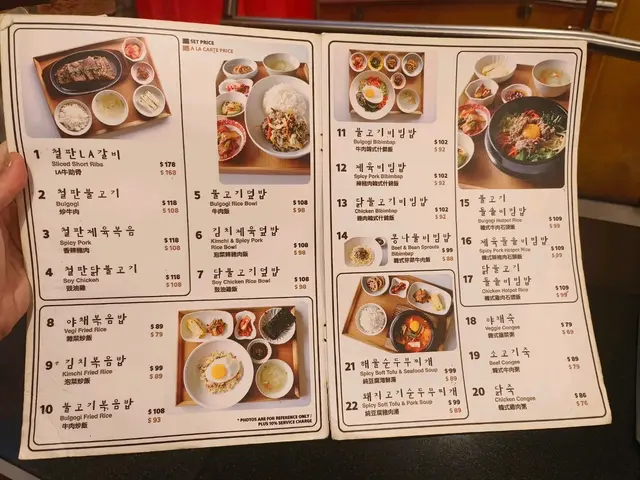 SET PRICE
A LA CARTE PRICE
1 철판LA갈비
Sliced Short Ribs $178
LA牛肋骨 $168
2 철판불고기
Bulgogi $118
炒牛肉 $108
3 철판제육볶음
Spicy Pork $118
香辣豬肉 $108
4 철판닭불고기
Soy Chicken $118
豉油雞 $108
5 불고기덮밥
Bulgogi Rice Bowl $108
牛肉飯 $98
6 김치제육덮밥
Kimchi & Spicy Pork
Rice Bowl $108
泡菜辣豬飯 $98
7 닭불고기덮밥
Soy Chicken Rice Bowl $108
豉油雞飯 $98
8 야채볶음밥
Vegi Fried Rice $89
雜菜炒飯 $79
9 김치볶음밥
Kimchi Fried Rice $99
泡菜炒飯 $89
10 불고기볶음밥
Bulgogi Fried Rice $108
牛肉炒飯 $93
* PHOTOS ARE FOR REFERENCE ONLY /
PLUS 10% SERVICE CHARGE
11 불고기비빔밥
Bulgogi Bibimbap $102
牛肉韓式什錦飯 $92
12 제육비빔밥
Spicy Pork Bibimbap $102
辣豬肉韓式什錦飯 $92
13 닭불고기비빔밥
Chicken Bibimbap $102
雞肉韓式什錦飯 $92
14 콩나물비빔밥
Beef & Bean Sprouts $99
Bibimbap $88
韓式芽菜牛肉飯
15 불고기
돌솥비빔밥
Bulgogi Hotpot Rice $109
韓式牛肉石頭飯 $99
16 제육돌솥비빔밥
Spicy Pork Hotpot Rice $109
韓式辣豬肉石頭飯 $99
17 닭불고기
돌솥비빔밥
Chicken Hotpot Rice $109
韓式雞肉石頭飯 $99
18 야채죽
Veggie Congee $79
韓式蔬菜粥 $69
19 소고기죽
Beef Congee $99
韓式牛肉粥 $89
20 닭죽
Chicken Congee $86
韓式雞肉粥 $76
21 해물순두부찌개
Spicy Soft Tofu & Seafood Soup $99
純豆腐海鮮湯 $89
22 돼지고기순두부찌개
Spicy Soft Tofu & Pork Soup $99
純豆腐豬肉湯 $89